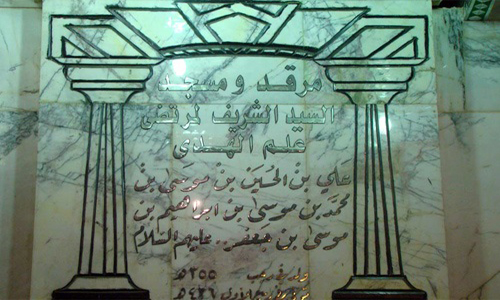 مرقد ومسجد
السيد الشريف المرتضى
علم الهدى
علي بن الحسين بن موسى بن
محمد بن موسى بن ابراهيم بن
موسى بن جعفر.. عليهم السلام
٣٥٥هـ
٤٣٦هـ